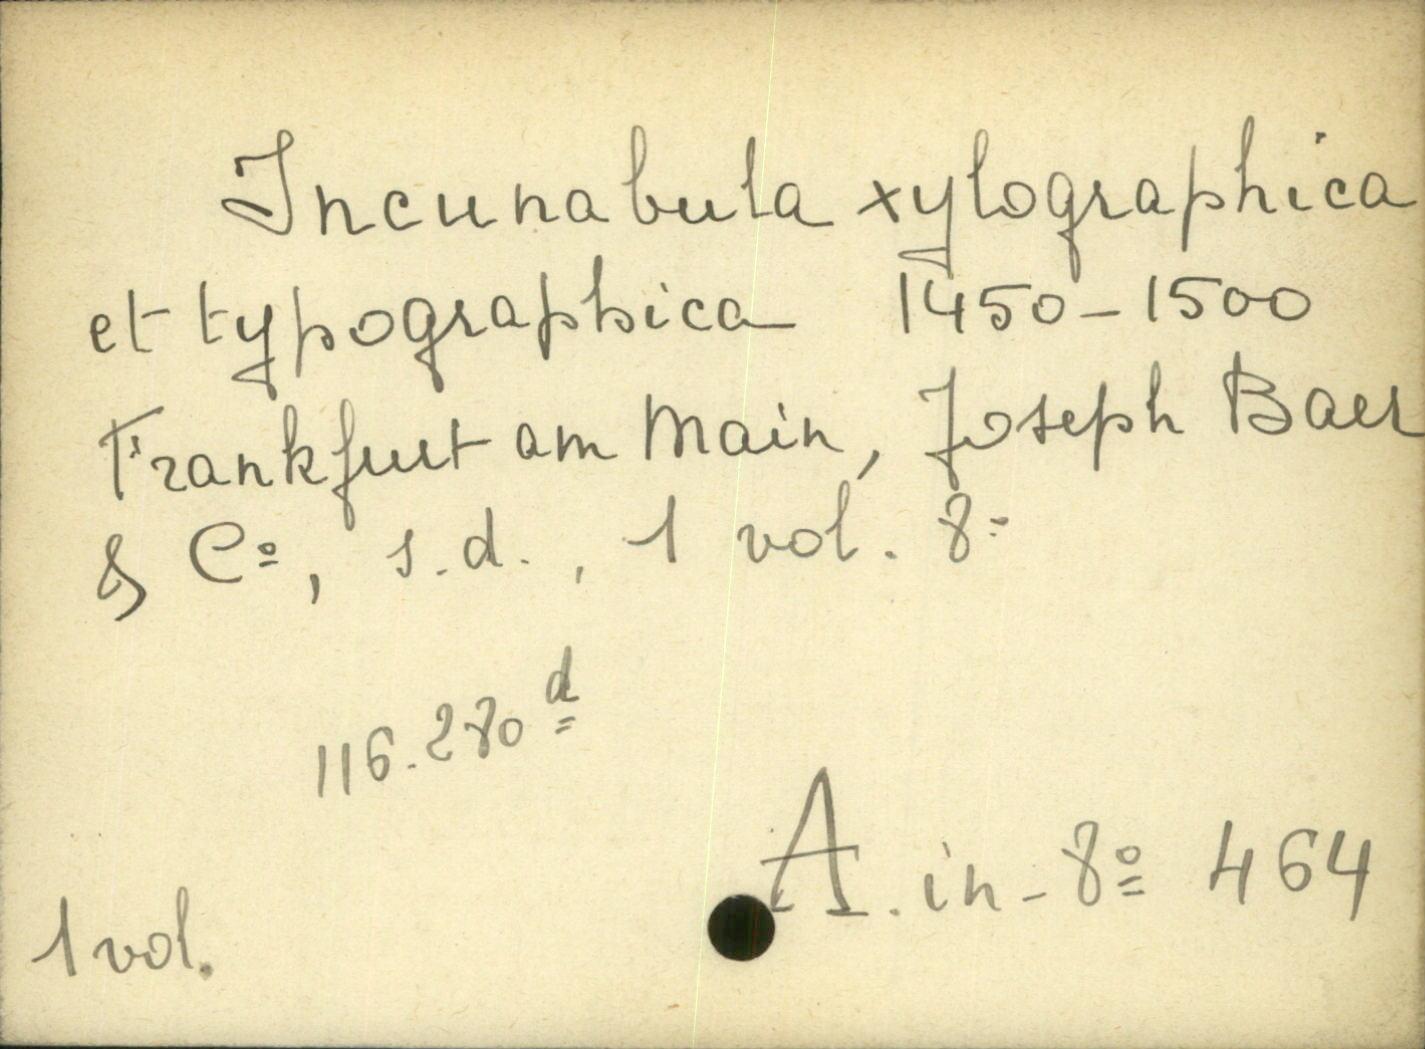 Incunabula xylographica
et typographica 1450-1500
Frankfurt am Main, Joseph Baer
& Cº, s.d., 1 vol. 8º
116.280 d
A. in-8º 464
1 vol.